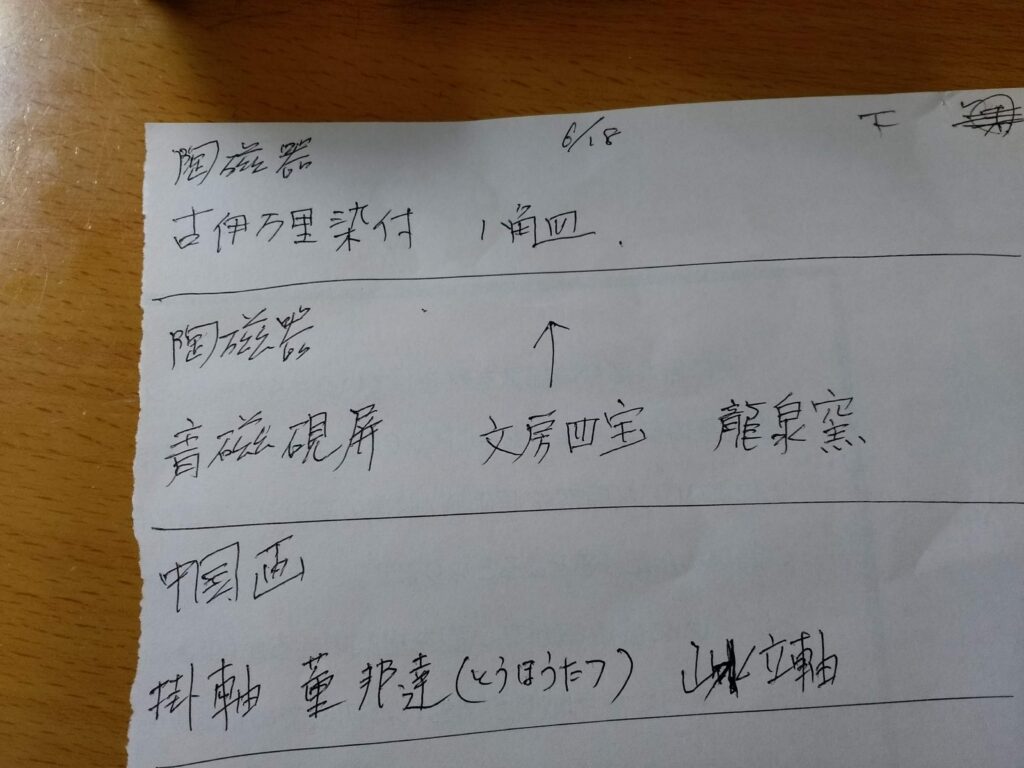 6/18 下
陶磁器
古伊万里染付 八角皿.
陶磁器
↑
青磁硯屏 文房四宝 龍泉窯
中国画
掛軸 董邦達(とうほうたつ) 山水立軸